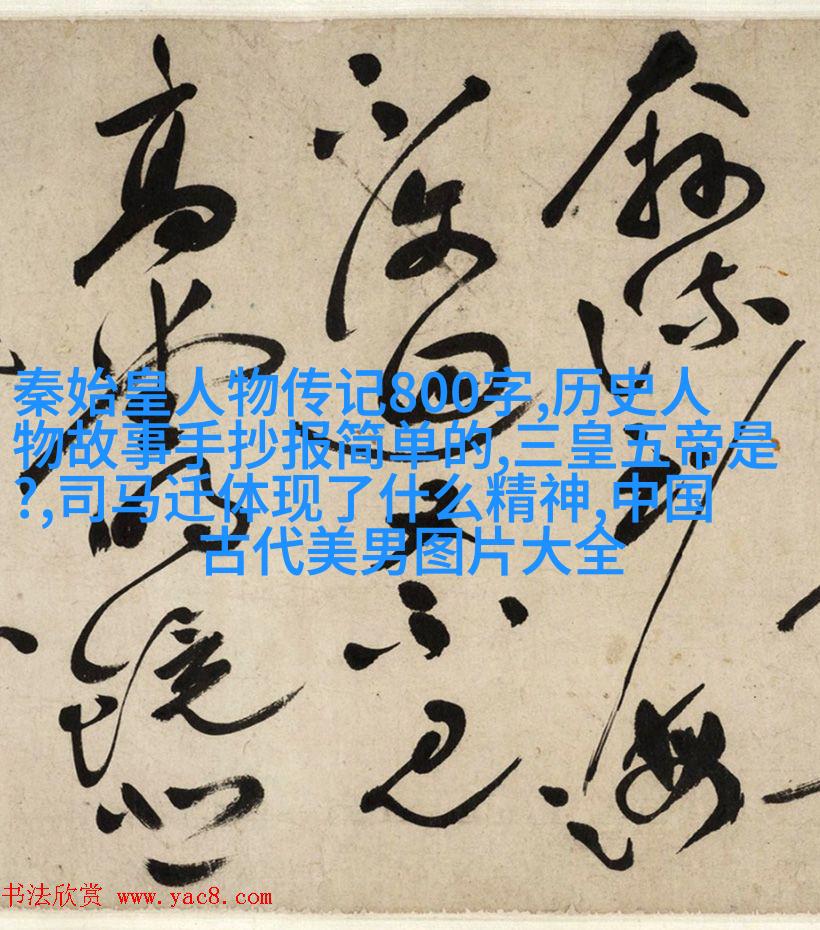 奔流到海
不復回君不見
高堂明鏡悲
秦始皇人物传记800字,历史人
物故事手抄报简单的,三皇五帝是
?,司马迁体现了什么精神,中国
古代美男图片大全
书法欣赏 www.yac8.com